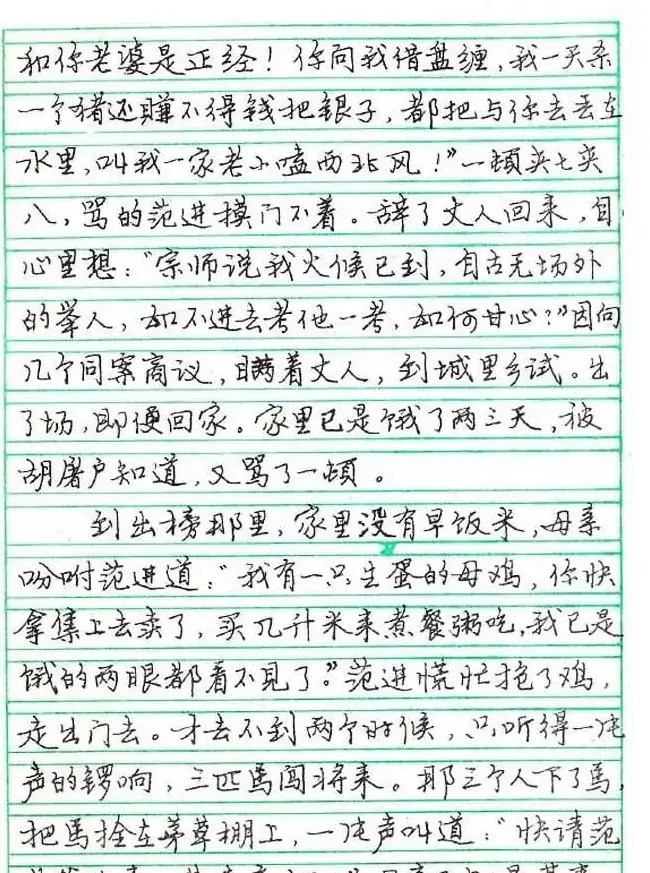 和你老婆是正经！你向我借盘缠，我一天杀
一个猪还賺不得钱把银子，都把与你去丢在
水里，叫我一家老小嗑西北风！”一頓夹七夹
八，骂的范进摸门不着。辞了丈人回来，自
心里想：“宗师说我火候已到，自古无场外
的举人，如不进去考他一考，如何甘心？”因向
几个同案商议，瞒着丈人，到城里乡试。出
了场，即便回家。家里已是饿了两三天，被
胡屠户知道，又骂了一頓。
到出榜那里，家里没有早饭米，母亲
吩咐范进道：“我有一只生蛋的母鸡，你快
拿集上去卖了，买几升米来煮餐粥吃，我已是
饿的两眼都看不見了。”范进慌忙抱了鸡，
走出门去。才去不到两个时候，只听得一片
声的锣响，三匹馬闯将来。那三个人下了馬，
把馬拴在茅草棚上，一片声叫道：“快请范